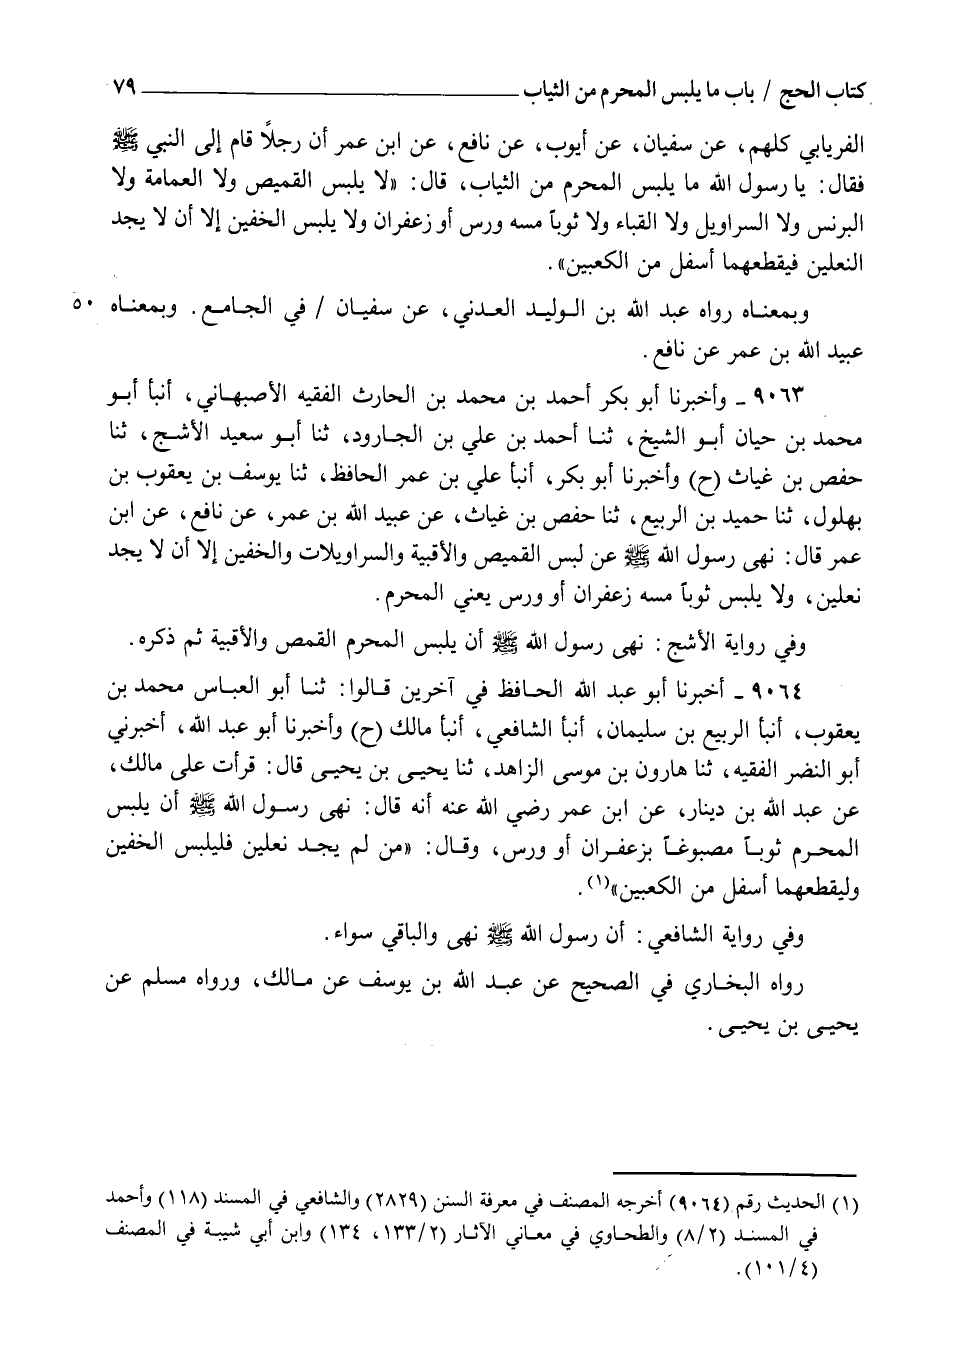 كتاب الحج / باب ما يلبس المحرم من الثياب ٧٩
الفريابي كلهم، عن سفيان، عن أيوب، عن نافع، عن ابن عمر أن رجلاً قام إلى النبي ﷺ
فقال: يا رسول الله ما يلبس المحرم من الثياب، قال: «لا يلبس القميص ولا العمامة ولا
البرنس ولا السراويل ولا القباء ولا ثوباً مسه ورس أو زعفران ولا يلبس الخفين إلا أن لا يجد
النعلين فيقطعهما أسفل من الكعبين».
وبمعناه رواه عبد الله بن الوليد العدني، عن سفيان / في الجامع. وبمعناه ٥٠
عبيد الله بن عمر عن نافع.
٩٠٦٣ ـ وأخبرنا أبو بكر أحمد بن محمد بن الحارث الفقيه الأصبهاني، أنبأ أبو
محمد بن حيان أبو الشيخ، ثنا أحمد بن علي بن الجارود، ثنا أبو سعيد الأشج، ثنا
حفص بن غياث (ح) وأخبرنا أبو بكر، أنبأ علي بن عمر الحافظ، ثنا يوسف بن يعقوب بن
بهلول، ثنا حميد بن الربيع، ثنا حفص بن غياث، عن عبيد الله بن عمر، عن نافع، عن ابن
عمر قال: نهى رسول الله ﷺ عن لبس القميص والأقبية والسراويلات والخفين إلا أن لا يجد
نعلين، ولا يلبس ثوباً مسه زعفران أو ورس يعني المحرم.
وفي رواية الأشج: نهى رسول الله ﷺ أن يلبس المحرم القمص والأقبية ثم ذكره.
٩٠٦٤ ـ أخبرنا أبو عبد الله الحافظ في آخرين قالوا: ثنا أبو العباس محمد بن
يعقوب، أنبأ الربيع بن سليمان، أنبأ الشافعي، أنبأ مالك (ح) وأخبرنا أبو عبد الله، أخبرني
أبو النضر الفقيه، ثنا هارون بن موسى الزاهد، ثنا يحيى بن يحيى قال: قرأت على مالك،
عن عبد الله بن دينار، عن ابن عمر رضي الله عنه أنه قال: نهى رسول الله ﷺ أن يلبس
المحرم ثوباً مصبوغاً بزعفران أو ورس، وقال: «من لم يجد نعلين فليلبس الخفين
وليقطعهما أسفل من الكعبين»(١).
وفي رواية الشافعي: أن رسول الله ﷺ نهى والباقي سواء.
رواه البخاري في الصحيح عن عبد الله بن يوسف عن مالك، ورواه مسلم عن
يحيى بن يحيى.
(١) الحديث رقم (٩٠٦٤) أخرجه المصنف في معرفة السنن (٢٨٢٩) والشافعي في المسند (١١٨) وأحمد
في المسند (٨/٢) والطحاوي في معاني الآثار (١٣٣/٢، ١٣٤) وابن أبي شيبة في المصنف
(١٠١/٤).